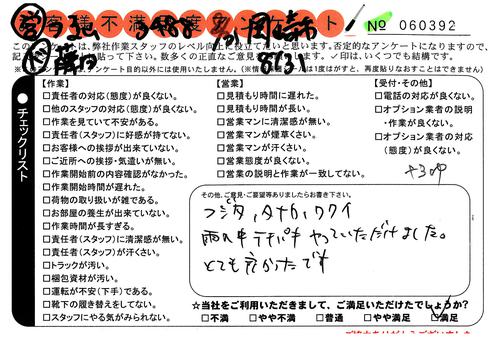 お客様不満足度アンケート
No 060392
このアンケートは、弊社作業スタッフのレベル向上に役立てたいと思います。否定的なアンケートになりますので、
記入 貼って下さい。数多くの正直なご意見 ✓印は、いくつでも結構です。
アンケート目的以外には使用いたしません。(※情報保護シールは1度はがすと、再度貼りなおすことはできません)
チェックリスト
【作業】
□責任者の対応(態度)が良くない。
□他のスタッフの対応(態度)が良くない。
□作業を見ていて不安がある。
□責任者(スタッフ)に好感が持てない。
□お客様への挨拶が出来ていない。
□ご近所への挨拶・気遣いが無い。
□作業開始前の内容確認がなかった。
□作業開始時間が遅れた。
□荷物の取り扱いが雑である。
□お部屋の養生が出来ていない。
□作業時間が長すぎる。
□責任者(スタッフ)に清潔感が無い。
□責任者(スタッフ)が汗くさい。
□トラックが汚い。
□梱包資材が汚い。
□運転が不安(下手)である。
□靴下の履き替えをしてない。
□スタッフにやる気がみられない。
【営業】
□見積もり時間に遅れた。
□見積もり時間が長い。
□営業マンに清潔感が無い。
□営業マンが煙草くさい。
□営業マンが汗くさい。
□営業態度が良くない。
□営業の説明と作業が一致してない。
【受付・その他】
□電話の対応が良くない。
□オプション業者の説明
・作業が良くない。
□オプション業者の対応
(態度)が良くない。
その他、ご意見・ご要望等ありましたらお書き下さい。
フジタ、タナカ、ワクイ
雨の中テキパキやっていただけました。
とても良かったです
☆当社をご利用いただきまして、ご満足いただけたでしょうか?
□不満 □やや不満 □普通 □やや満足 ☑満足